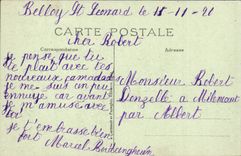 Belloy St Leonard le 15-11-21
CARTE POSTALE
Correspondance
Adresse
cher Robert
je pense que tu
te plait avec tes
nouveaux camadades
je me suis un peu
ennuyé car avant
je m'amuse avec
toi
je t'embrasse bien
fort Marcel
Monsieur Robert
Denzelle à Millencourt
par Albert